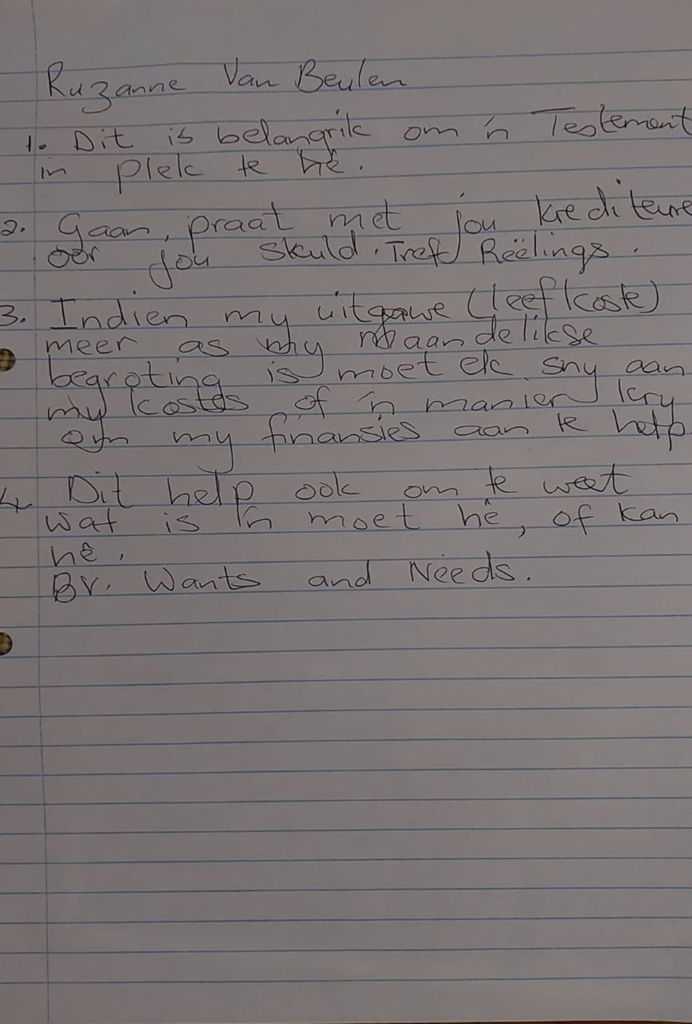 Ruzanne Van Beulen
1. Dit is belangrik om 'n Testement
in plek te hê.
2. Gaan, praat met jou krediteure
oor jou skuld. Tref Reëlings.
3. Indien my uitgawe (leefkoste)
meer as my maandelikse
begroting is moet ek sny aan
my kostes of 'n manier kry
om my finansies aan te help
4. Dit help ook om te weet
wat is 'n moet hê, of kan
hê.
BV. Wants and Needs.